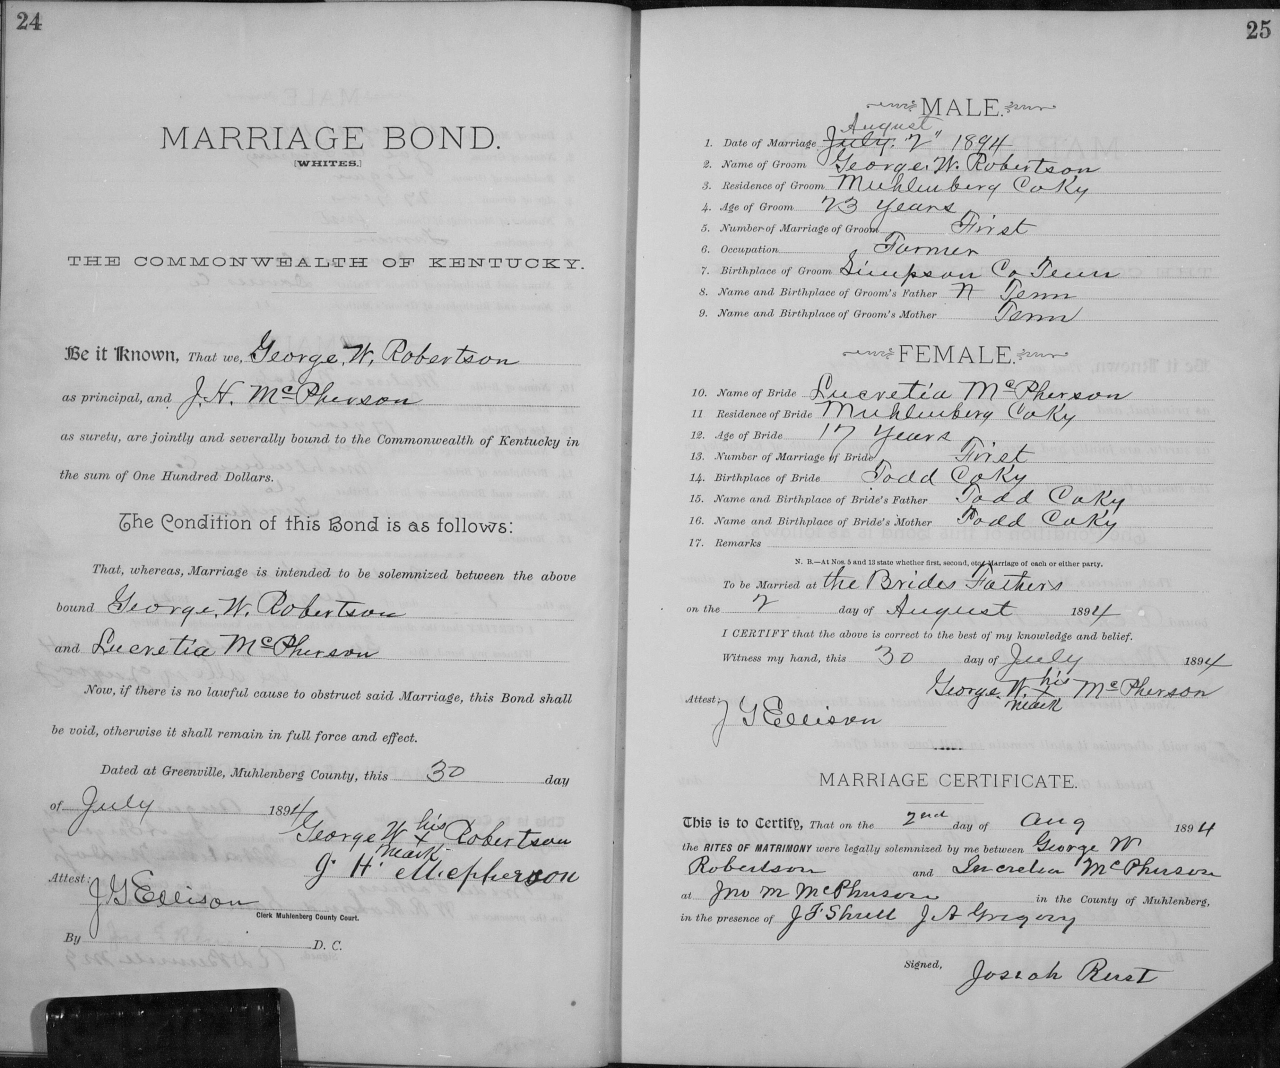 24
MARRIAGE BOND.
[WHITES.]
THE COMMONWEALTH OF KENTUCKY.
Be it Known, That we, George. W. Robertson
as principal, and J. H. McPherson
as surety, are jointly and severally bound to the Commonwealth of Kentucky in
the sum of One Hundred Dollars.
The Condition of this Bond is as follows:
That, whereas, Marriage is intended to be solemnized between the above
bound George. W. Robertson
and Lucretia McPherson
Now, if there is no lawful cause to obstruct said Marriage, this Bond shall
be void, otherwise it shall remain in full force and effect.
Dated at Greenville, Muhlenberg County, this 30 day
of July 1894
George W his x mark Robertson
J H Mcpherson
Attest: J G Ellison
Clerk Muhlenberg County Court.
By D. C.
25
MALE.
August
1. Date of Marriage July. 2" 1894
2. Name of Groom George. W. Robertson
3. Residence of Groom Muhlenberg Co Ky
4. Age of Groom 23 years
5. Number of Marriage of Groom First
6. Occupation Farmer
7. Birthplace of Groom Simpson Co Tenn
8. Name and Birthplace of Groom's Father Tenn
9. Name and Birthplace of Groom's Mother Tenn
FEMALE.
10. Name of Bride Lucretia McPherson
11 Residence of Bride Muhlenberg Co Ky
12. Age of Bride 17 Years
13. Number of Marriage of Bride First
14. Birthplace of Bride Todd Co Ky
15. Name and Birthplace of Bride's Father Todd Co Ky
16. Name and Birthplace of Bride's Mother Todd Co Ky
17. Remarks
N. B.—At Nos. 5 and 13 state whether first, second, etc., Marriage of each or either party.
To be Married at the Brides Fathers
on the 2 day of August 1894
I CERTIFY that the above is correct to the best of my knowledge and belief.
Witness my hand, this 30 day of July 1894
George. W. his x mark McPherson
Attest: J G Ellison
MARRIAGE CERTIFICATE.
This is to Certify, That on the 2nd day of Aug 1894
the RITES OF MATRIMONY were legally solemnized by me between George W
Robertson and Lucretia McPherson
at Jno M McPherson in the County of Muhlenberg,
in the presence of J F Shrell J A Gregory
Signed, Josiah Rust